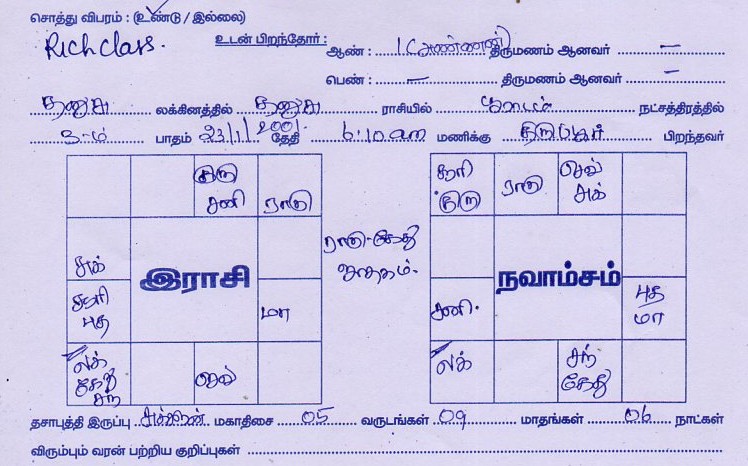 சொத்து விபரம் : (உண்டு / இல்லை)
Rich class.
உடன் பிறந்தோர் : ஆண் : 1 (அண்ணன்) திருமணம் ஆனவர் —
பெண் : — திருமணம் ஆனவர் —
தனுசு லக்கினத்தில் தனுசு ராசியில் நட்சத்திரத்தில்
3-ம் பாதம் 23/1/2001 தேதி 6:10 am மணிக்கு பிறந்தவர்
குரு சனி ராகு
சுக்
இராசி
சூரி புத
மா
லக் கேது சந்
செவ்
ராகு-கேது ஜாதகம்.
சூரி குரு ராகு செவ் சுக்
நவாம்சம்
சனி.
புத மா
லக்
சந் கேது
தசாபுத்தி இருப்பு சுக்கிரன் மகாதிசை 05 வருடங்கள் 09 மாதங்கள் 06 நாட்கள்
விரும்பும் வரன் பற்றிய குறிப்புகள்